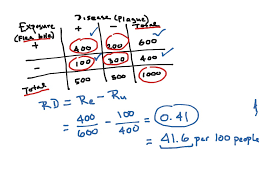 Disease (Plague)
Exposure + - Total
(Flea bite)
+ 400 200 600
- 100 300 400
Total 500 500 1000
RD = Re - Ru
= 400/600 - 100/400 = 0.41
= 41.6 per 100 people